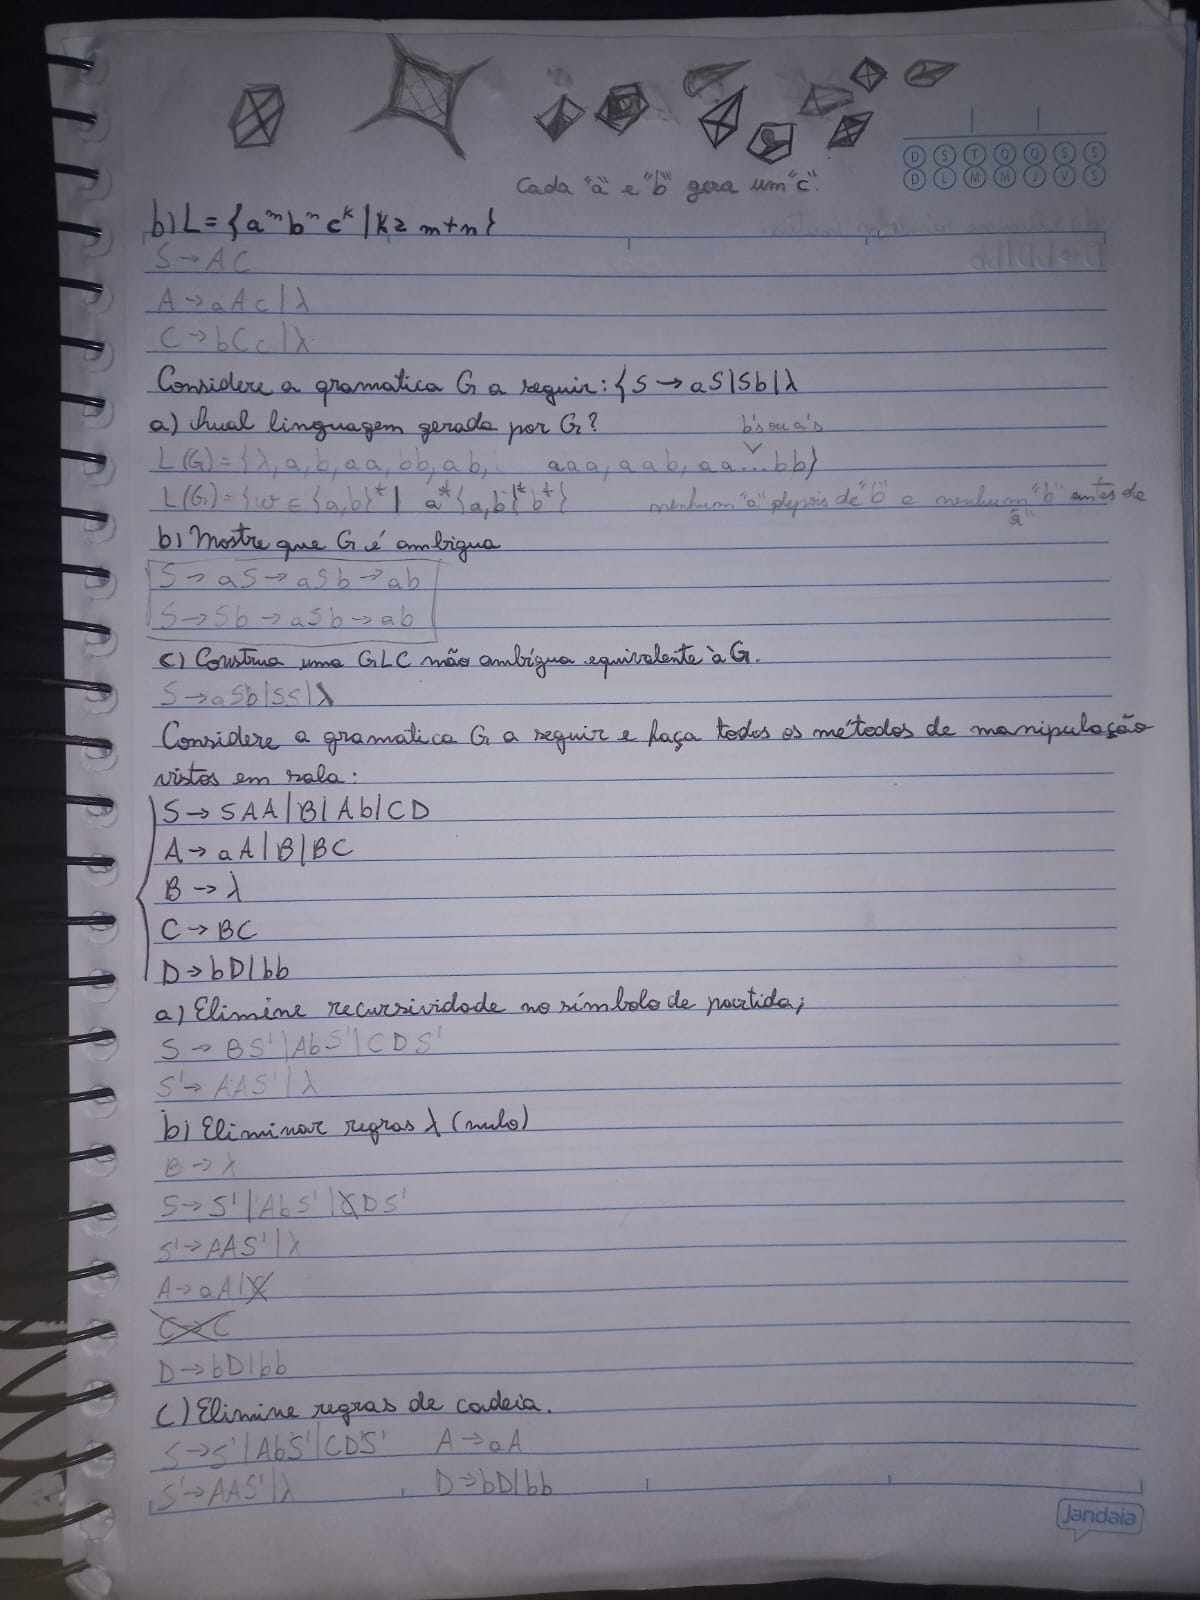 D S T Q Q S S
D L M M J V S
Cada "a" e "b" gera um "c".
b) L = {aᵐbⁿcᵏ | k≥ m+n}
S → AC
A → aAc | λ
C → bCc | λ
Considere a gramatica G a seguir: {S → aS|Sb|λ
a) Qual linguagem gerada por G?
b's ou a's
L(G) = {λ, a, b, aa, bb, ab, aaa, aab, aa...bb}
L(G) = {w ∈ {a,b}* | a*{a,b}*b*}
nenhum "a" depois de "b" e nenhum "b" antes de "a"
b) Mostre que G é ambigua
S → aS → aSb → ab
S → Sb → aSb → ab
c) Construa uma GLC não ambígua equivalente à G.
S → aSb|SS|λ
Considere a gramatica G a seguir e faça todos os métodos de manipulação
vistos em sala:
S → SAA|B|Ab|CD
A → aA|B|BC
B → λ
C → BC
D → bD|bb
a) Elimine recursividade no símbolo de partida;
S → BS'|AbS'|CDS'
S' → AAS'|λ
b) Eliminar regras λ (nulo)
B → λ
S → S'|AbS'|CDS'
S' → AAS'|λ
A → aA|C
C → C
D → bD|bb
c) Elimine regras de cadeia.
S → S'|AbS'|CDS' A → aA
S' → AAS'|λ D → bD|bb
Jandaia